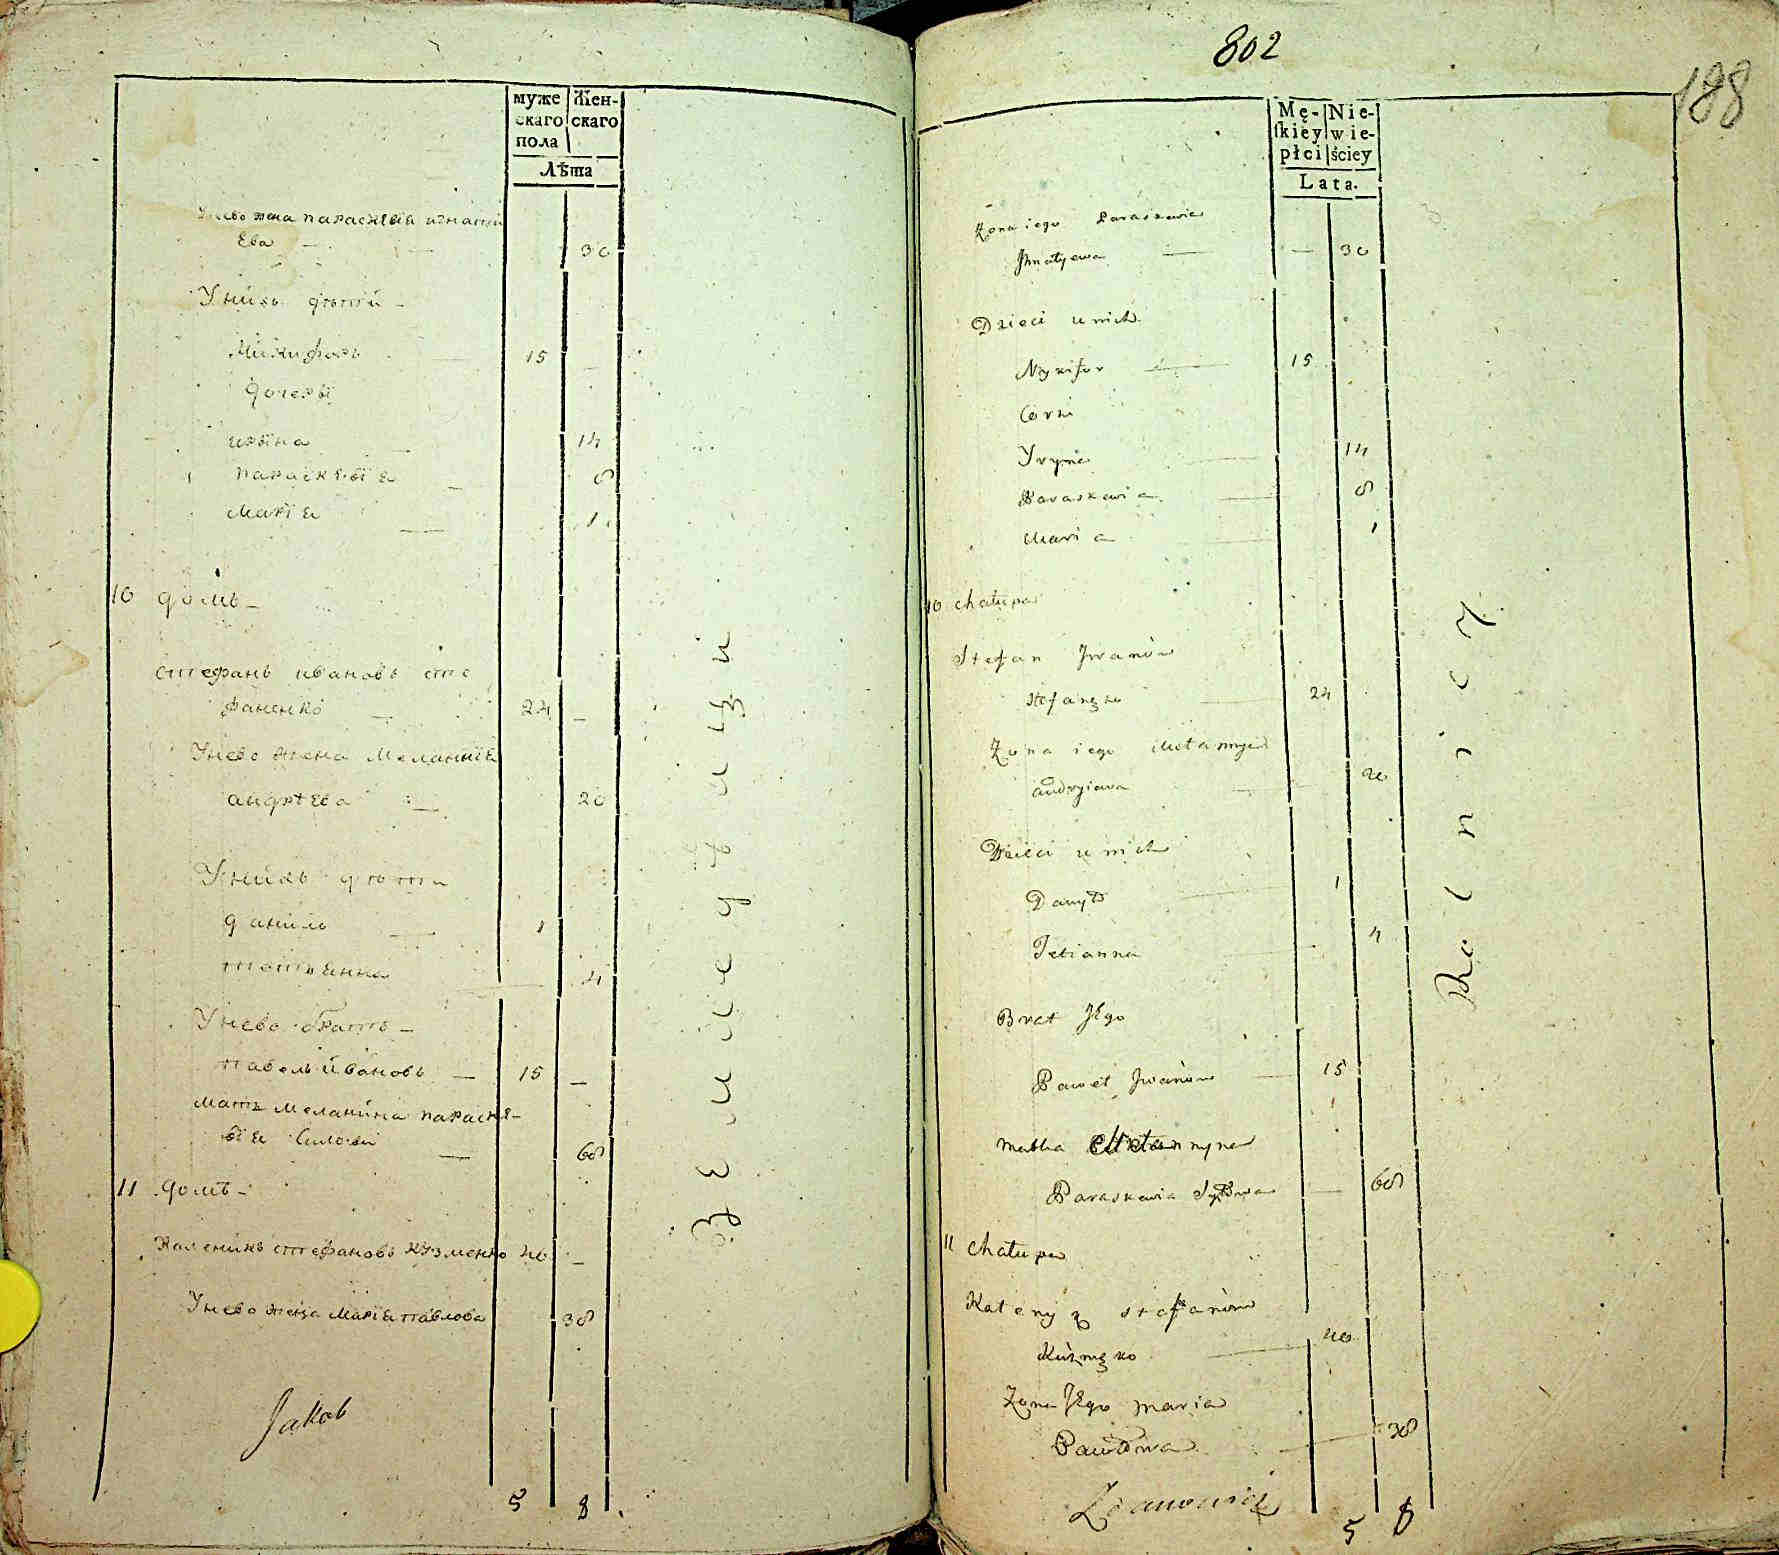 муже
скаго
пола
Жен-
скаго
Лѣта
Унево жена параскевия игнати
ева 30
Унихъ дѣтти
Микифоръ 15
дочери
ирина 14
параскевия 8
Мария 1
10 домъ
стефанъ ивановъ сте
фаненко 24
Унево жена Меланния
андрѣева 20
Унихъ дѣтти
данило 1
тетиянна 4
Унево братъ
павелъ ивановъ 15
мать меланина параске-
вия 68
11 домъ
Каленикъ стефановъ кузменко 40
Унево жена Мария павлова 38
Jakob
5 8
Земледѣлцы
802
188
Mę-
skiey
płci
Nie-
wie-
ściey
Lata.
Zona iego Paraskewia
Ihnatyewa 30
Dzieci u nich
Nykifor 15
Corki
Yryna 14
Paraskewia 8
Maria 1
10 chałupa
Stefan Jwanów
Stefanęko 24
Zona iego Mełannyia
andryiewa 20
Dzieci u nich
Danyło 1
Tetianna 4
Brat Jego
Paweł Jwanów 15
matka Mełannyna
Paraskewia 68
11 chałupa
Kałenyk stefanów
Kuźmęko 40
Zona Jego maria
Pawłowa 38
5 8
Rolnicy